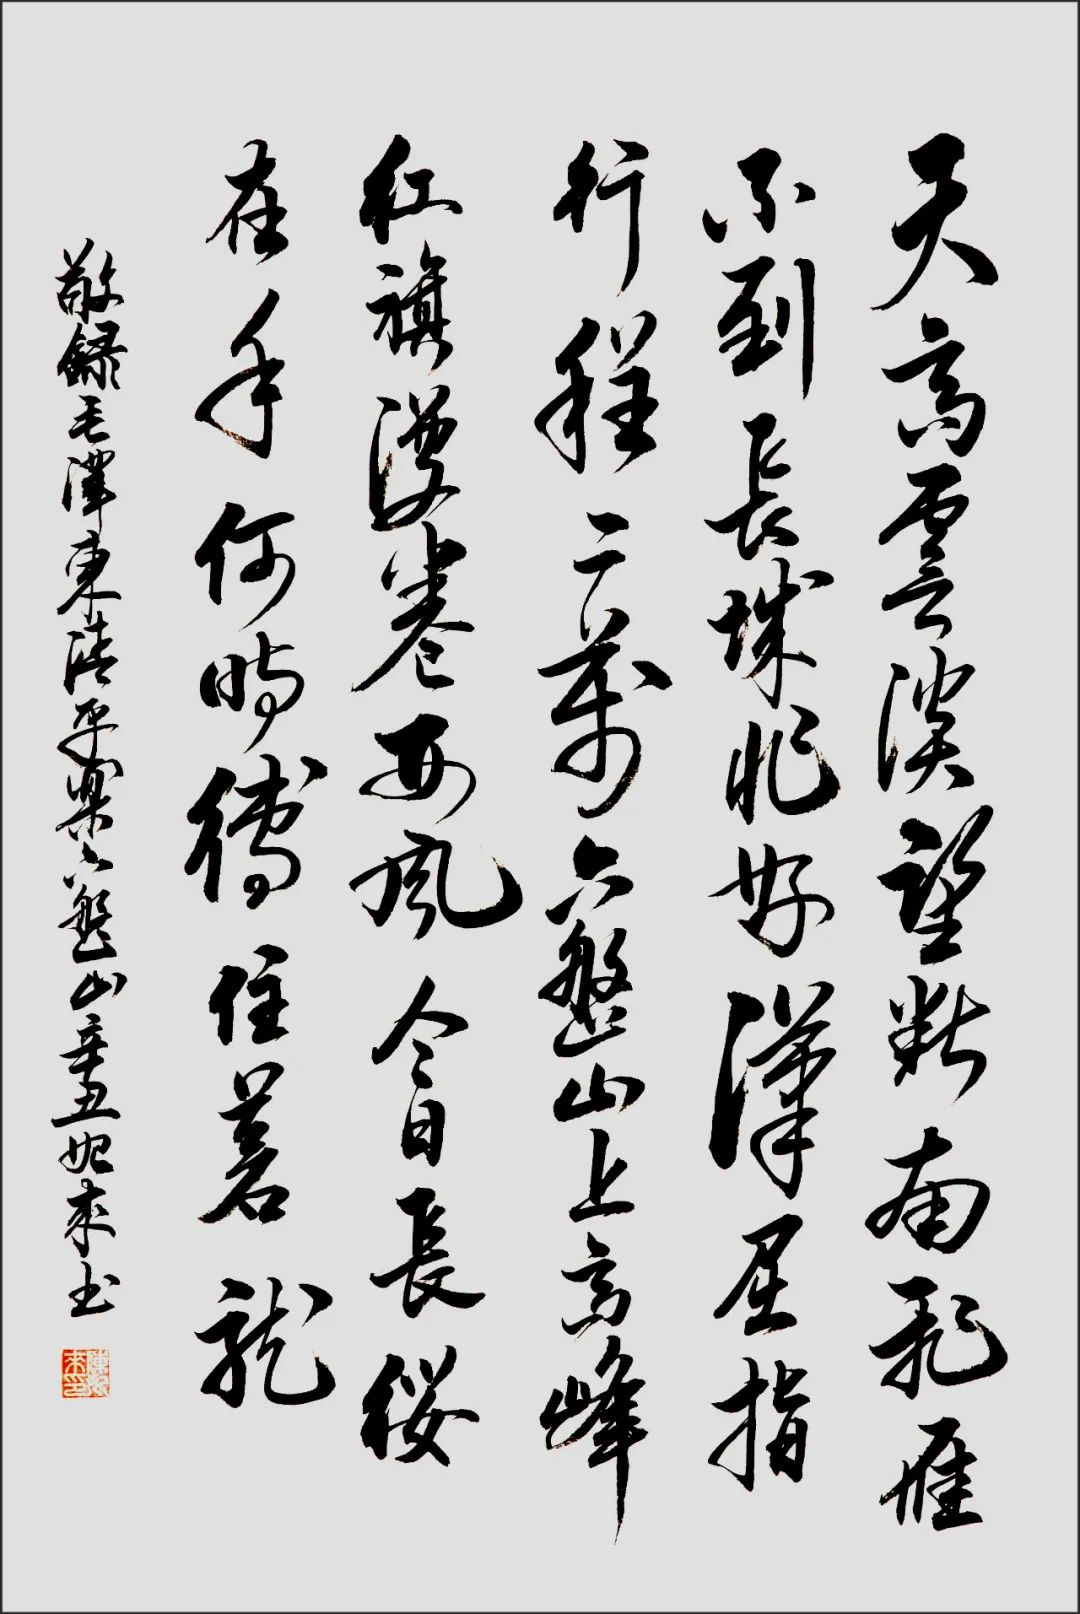 天高雲淡望断南飛雁
不到長城非好漢屈指
行程二萬六盤山上高峰
紅旗漫卷西風今日長纓
在手何時縛住蒼龍
敬録毛澤東清平樂六盤山辛丑來书